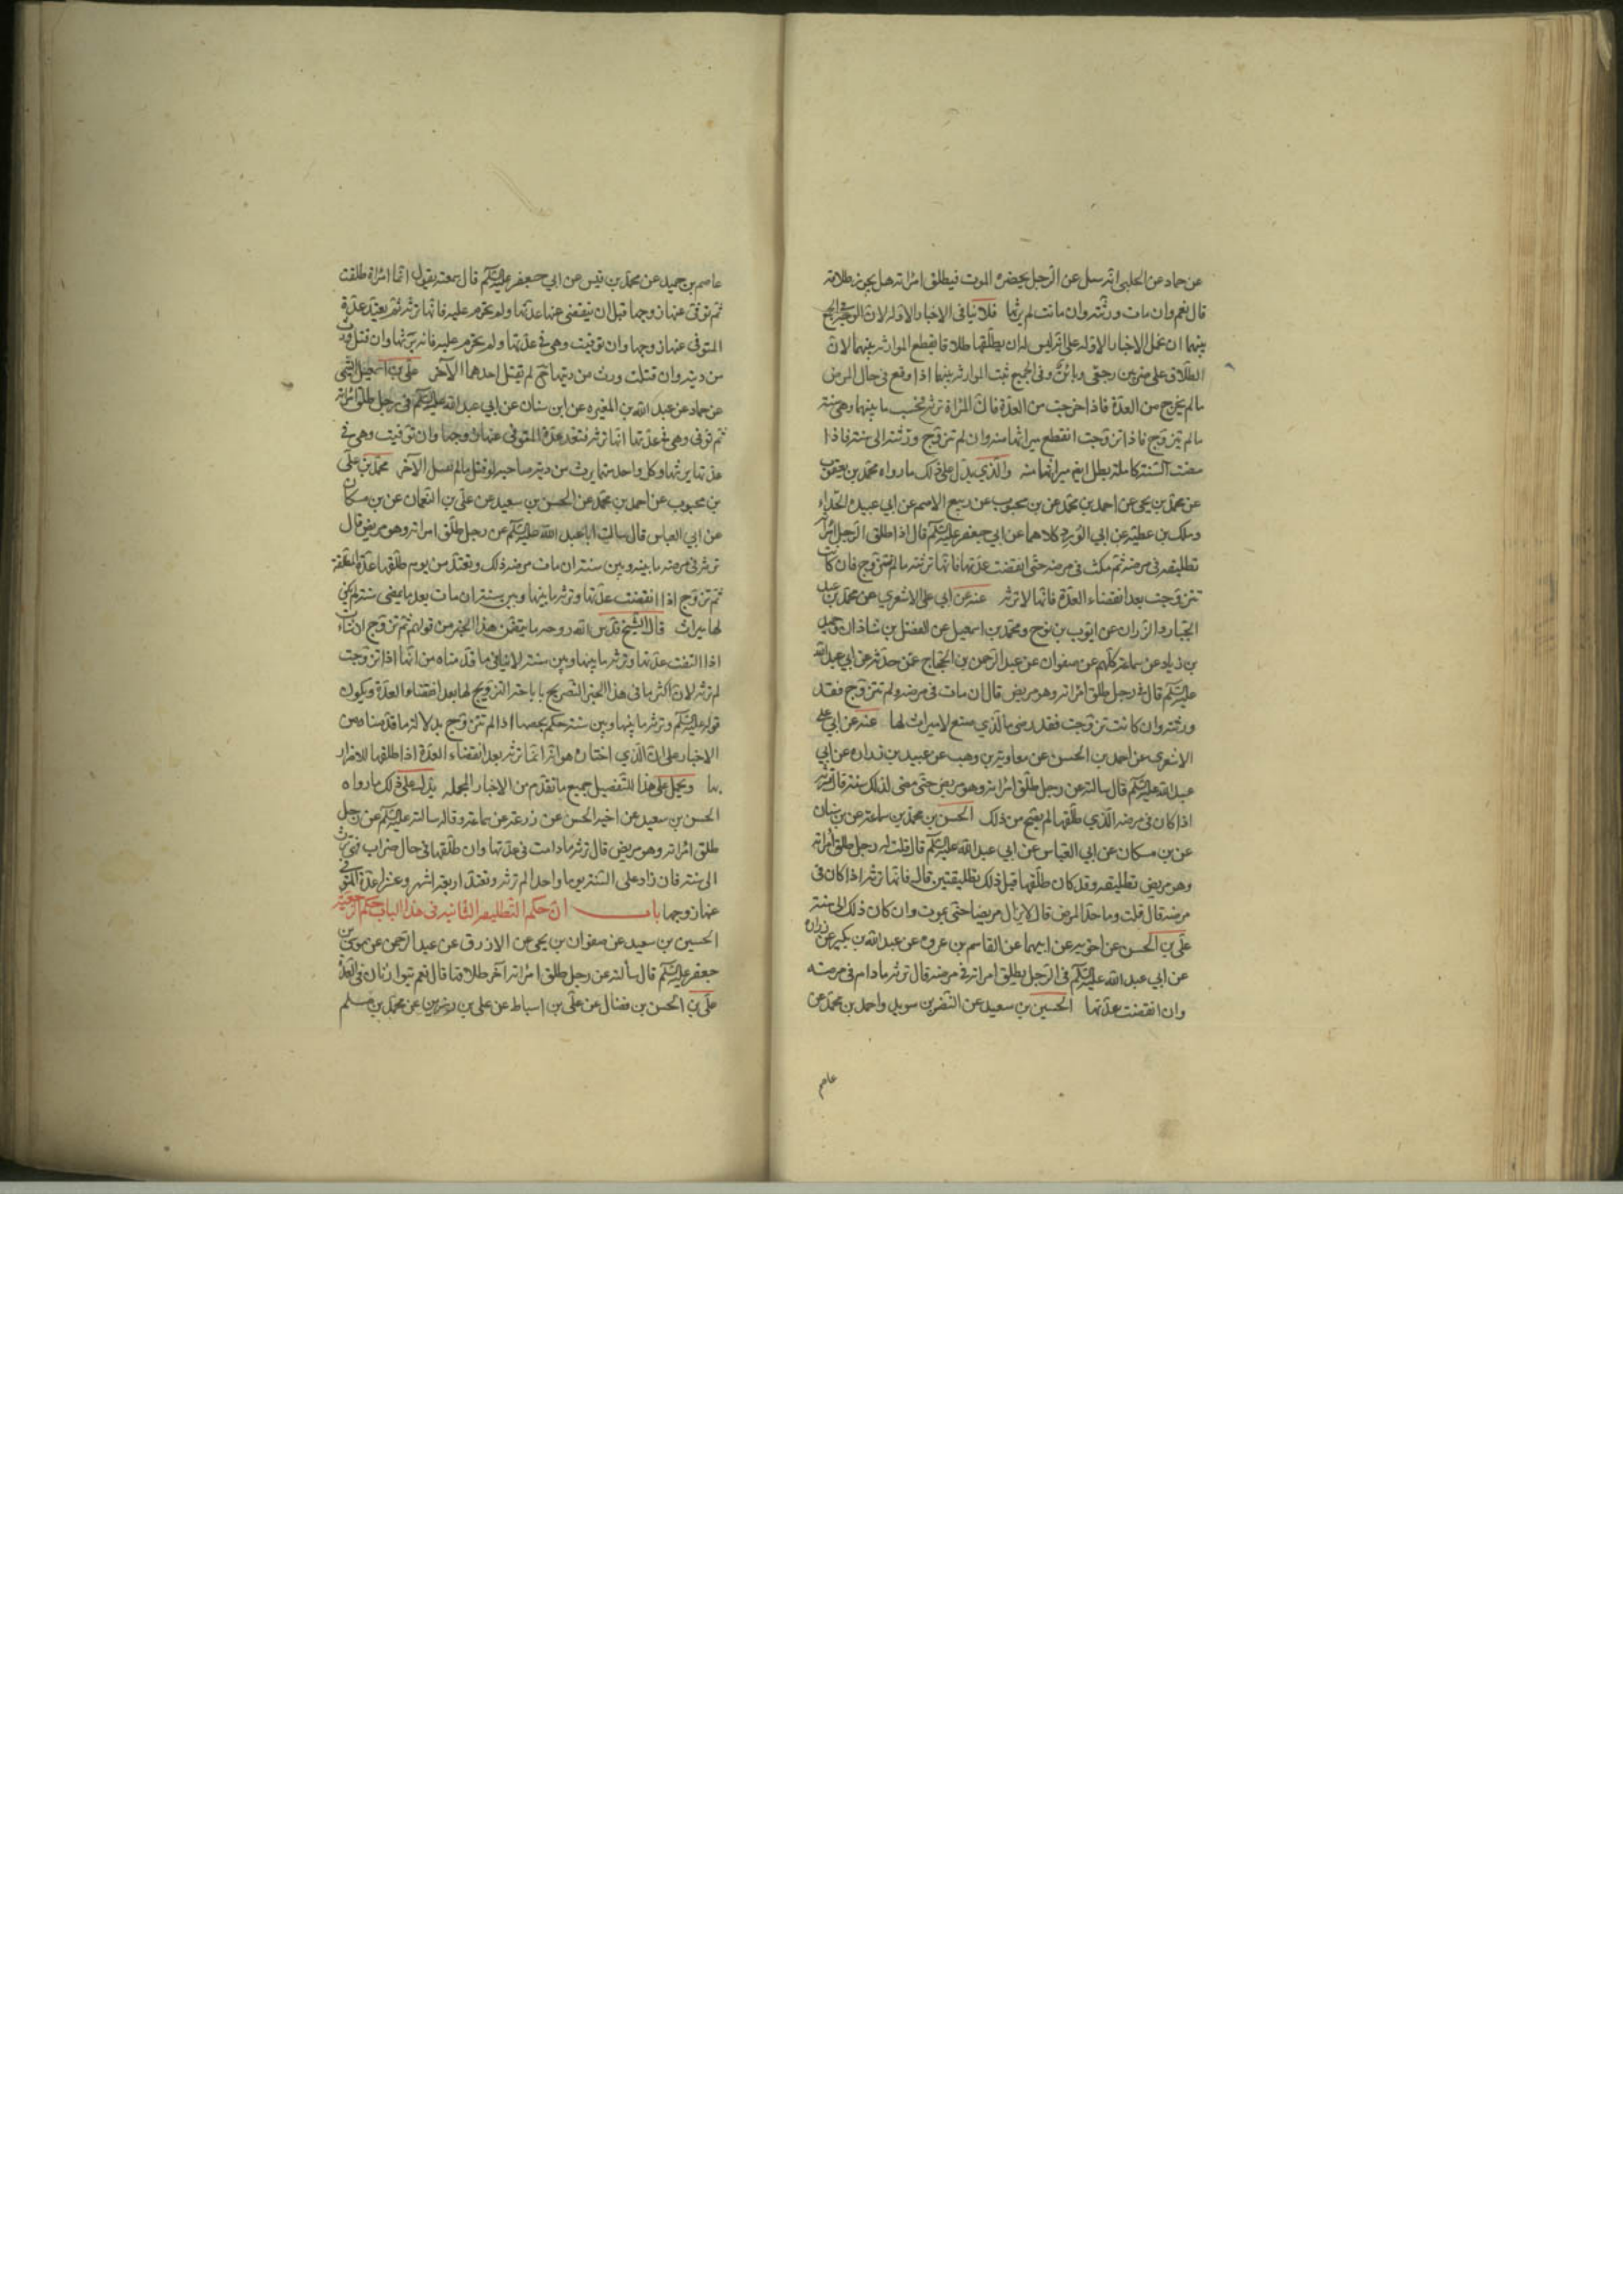 عن حماد عن الحلبى انه سئل عن الرجل يحضره الموت فيطلق امراته هل يجوز طلاقه
قال نعم وان مات ورثته وان ماتت لم يرثها فلا ينافى الاخبار الاوله لان الوجه فى الجمع
بينهما ان نحمل الاخبار الاوله على انه ليس له ان يطلقها طلاقا يقطع الموارثه بينهما لان
الطلاق على ضربين رجعى وبائن وفى الجميع ثبت الموارثه بينهما اذا وقع فى حال المرض
ما لم يخرج من العدة فاذا خرجت من العدة فان المراة ترثه بحسب ما بينها وهى سنة
ما لم يتزوج فاذا تزوجت انقطع ميراثها منه وان لم تتزوج ورثته الى سنة فاذا
مضت السنة كاملة بطل ايضا ميراثها منه والذي يدل على ذلك ما رواه محمد بن يعقوب
عن محمد بن يحيى عن احمد بن محمد عن بن محبوب عن ربيع الاصم عن ابي عبيدة الحذاء
وملك بن عطية عن ابي الورد كلاهما عن ابي جعفر عليه السلم قال اذا طلق الرجل امراته
تطليقه فى مرضه ثم مكث فى مرضه حتى انقضت عدتها فانها ترثه ما لم تتزوج فان كانت
تتزوجت بعد انقضاء العدة فانها لا ترثه عنه عن ابي على الاشعري عن محمد بن عبد
الجبار والرزاز عن ايوب بن نوح ومحمد بن اسمعيل عن الفضل بن شاذان وحميد
بن زياد عن سماعه كلهم عن صفوان عن عبد الرحمن بن الحجاج عمن حدثه عن ابي عبد الله
عليه السلم قال فى رجل طلق امراته وهو مريض قال ان مات فى مرضه ولم تتزوج فقد
ورثته وان كانت تزوجت فقد رضى بالذي صنع لا ميراث لها عنه عن ابي على
الاشعري عن احمد بن الحسن عن معاوية بن وهب عن عبيد بن زرارة عن ابي
عبد الله عليه السلم قال سالته عن رجل طلق امراته وهو مريض حتى مضى لذلك سنة قال ترثه
اذا كان فى مرضه الذي طلقها لم يصح من ذلك الحسن بن محمد بن سماعه عن بن
عن بن مسكان عن ابي العباس عن ابي عبد الله عليه السلم قال قلت له رجل طلق امراته
وهو مريض تطليقه وقد كان طلقها قبل ذلك تطليقتين قال فانها ترثه اذا كان فى
مرضه قال قلت وما حد المرض قال لا يزال مريضا حتى يموت وان كان ذلك الى سنة
على بن الحسن عن اخويه عن ابيهما عن القاسم بن عروه عن عبد الله بن بكير عن زراره
عن ابي عبد الله عليه السلم فى الرجل يطلق امراته فى مرضه قال ترثه ما دام فى مرضه
وان انقضت عدتها الحسين بن سعيد عن النضر بن سويد واحمد بن محمد عن
عاصم
عاصم بن حميد عن محمد بن قيس عن ابي جعفر عليه السلم قال سمعته يقول ايما امراة طلقت
ثم توفى عنها زوجها قبل ان ينقضى عنها عدتها ولم يحرم عليه فانها ترثه ثم يعتد عدة
المتوفى عنها زوجها وان توفيت وهى فى عدتها ولم يحرم عليه فانه يرثها وان قتل ورثت
من ديته وان قتلت ورث من ديتها لم يقتل احدهما الآخر على بن اسمعيل الميثمى
عن حماد عن عبد الله بن المغيره عن ابن سنان عن ابي عبد الله عليه السلم فى رجل طلق امراته
ثم توفى وهى فى عدتها انها ترثه وتعتد عدة المتوفى عنها زوجها وان توفيت وهى فى
عدتها يرثها وكل واحد منهما يرث من دية صاحبه لو قتل ما لم يقتل الآخر محمد بن على
بن محبوب عن احمد بن محمد عن الحسن بن سعيد عن على بن النعمان عن بن مسكان
عن ابي العباس قال سالت ابا عبد الله عليه السلم عن رجل طلق امراته وهو مريض قال
ترثه فى مرضه ما بينه وبين سنة ان مات من مرضه ذلك وتعتد من يوم طلقها عدة المطلقة
ثم تزوج اذا انقضت عدتها وترثه ما بينها وبين سنة ان مات بعد ما يمضى سنة لم يكن
لها ميراث قال الشيخ قدس الله روحه ما يتضمن هذا الخبر من قوله ثم تزوج ان شاءت
اذا انقضت عدتها وترثه ما بينها وبين سنة لا ينافى ما قدمناه من انها اذا تزوجت
لم ترثه لان اكثر ما فى هذا الخبر التصريح باباحة التزويج لها بعد انقضاء العدة ويكون
قوله عليه السلم وترثه ما بينها وبين سنة حكم يخصها اذا لم تتزوج بدلالة ما قدمناه من
الاخبار على ان الذي اختاره هو انه انما ترثه بعد انقضاء العدة اذا طلقها للاضرار
بها ويحمل على هذا التفصيل جميع ما تقدم من الاخبار المجمله يدل على ذلك ما رواه
الحسن بن سعيد عن اخيه الحسن عن زرعة عن سماعه وقال سالته عليه السلم عن رجل
طلق امراته وهو مريض قال ترثه ما دامت فى عدتها وان طلقها فى حال ضرار فهى ترثه
الى سنة فان زاد على السنة يوما واحدا لم ترثه وتعتد اربعة اشهر وعشرا عدة المتوفى
عنها زوجها باب ان حكم التطليقه الثانيه فى هذا الباب حكم الرجعية
الحسين بن سعيد عن صفوان بن يحيى عن الازرق عن عبد الرحمن عن موسى بن
جعفر عليه السلم قال سألته عن رجل طلق امراته آخر طلاقها قال نعم يتوارثان فى العدة
على بن الحسن بن فضال عن على بن اسباط عن على بن عن محمد بن مسلم